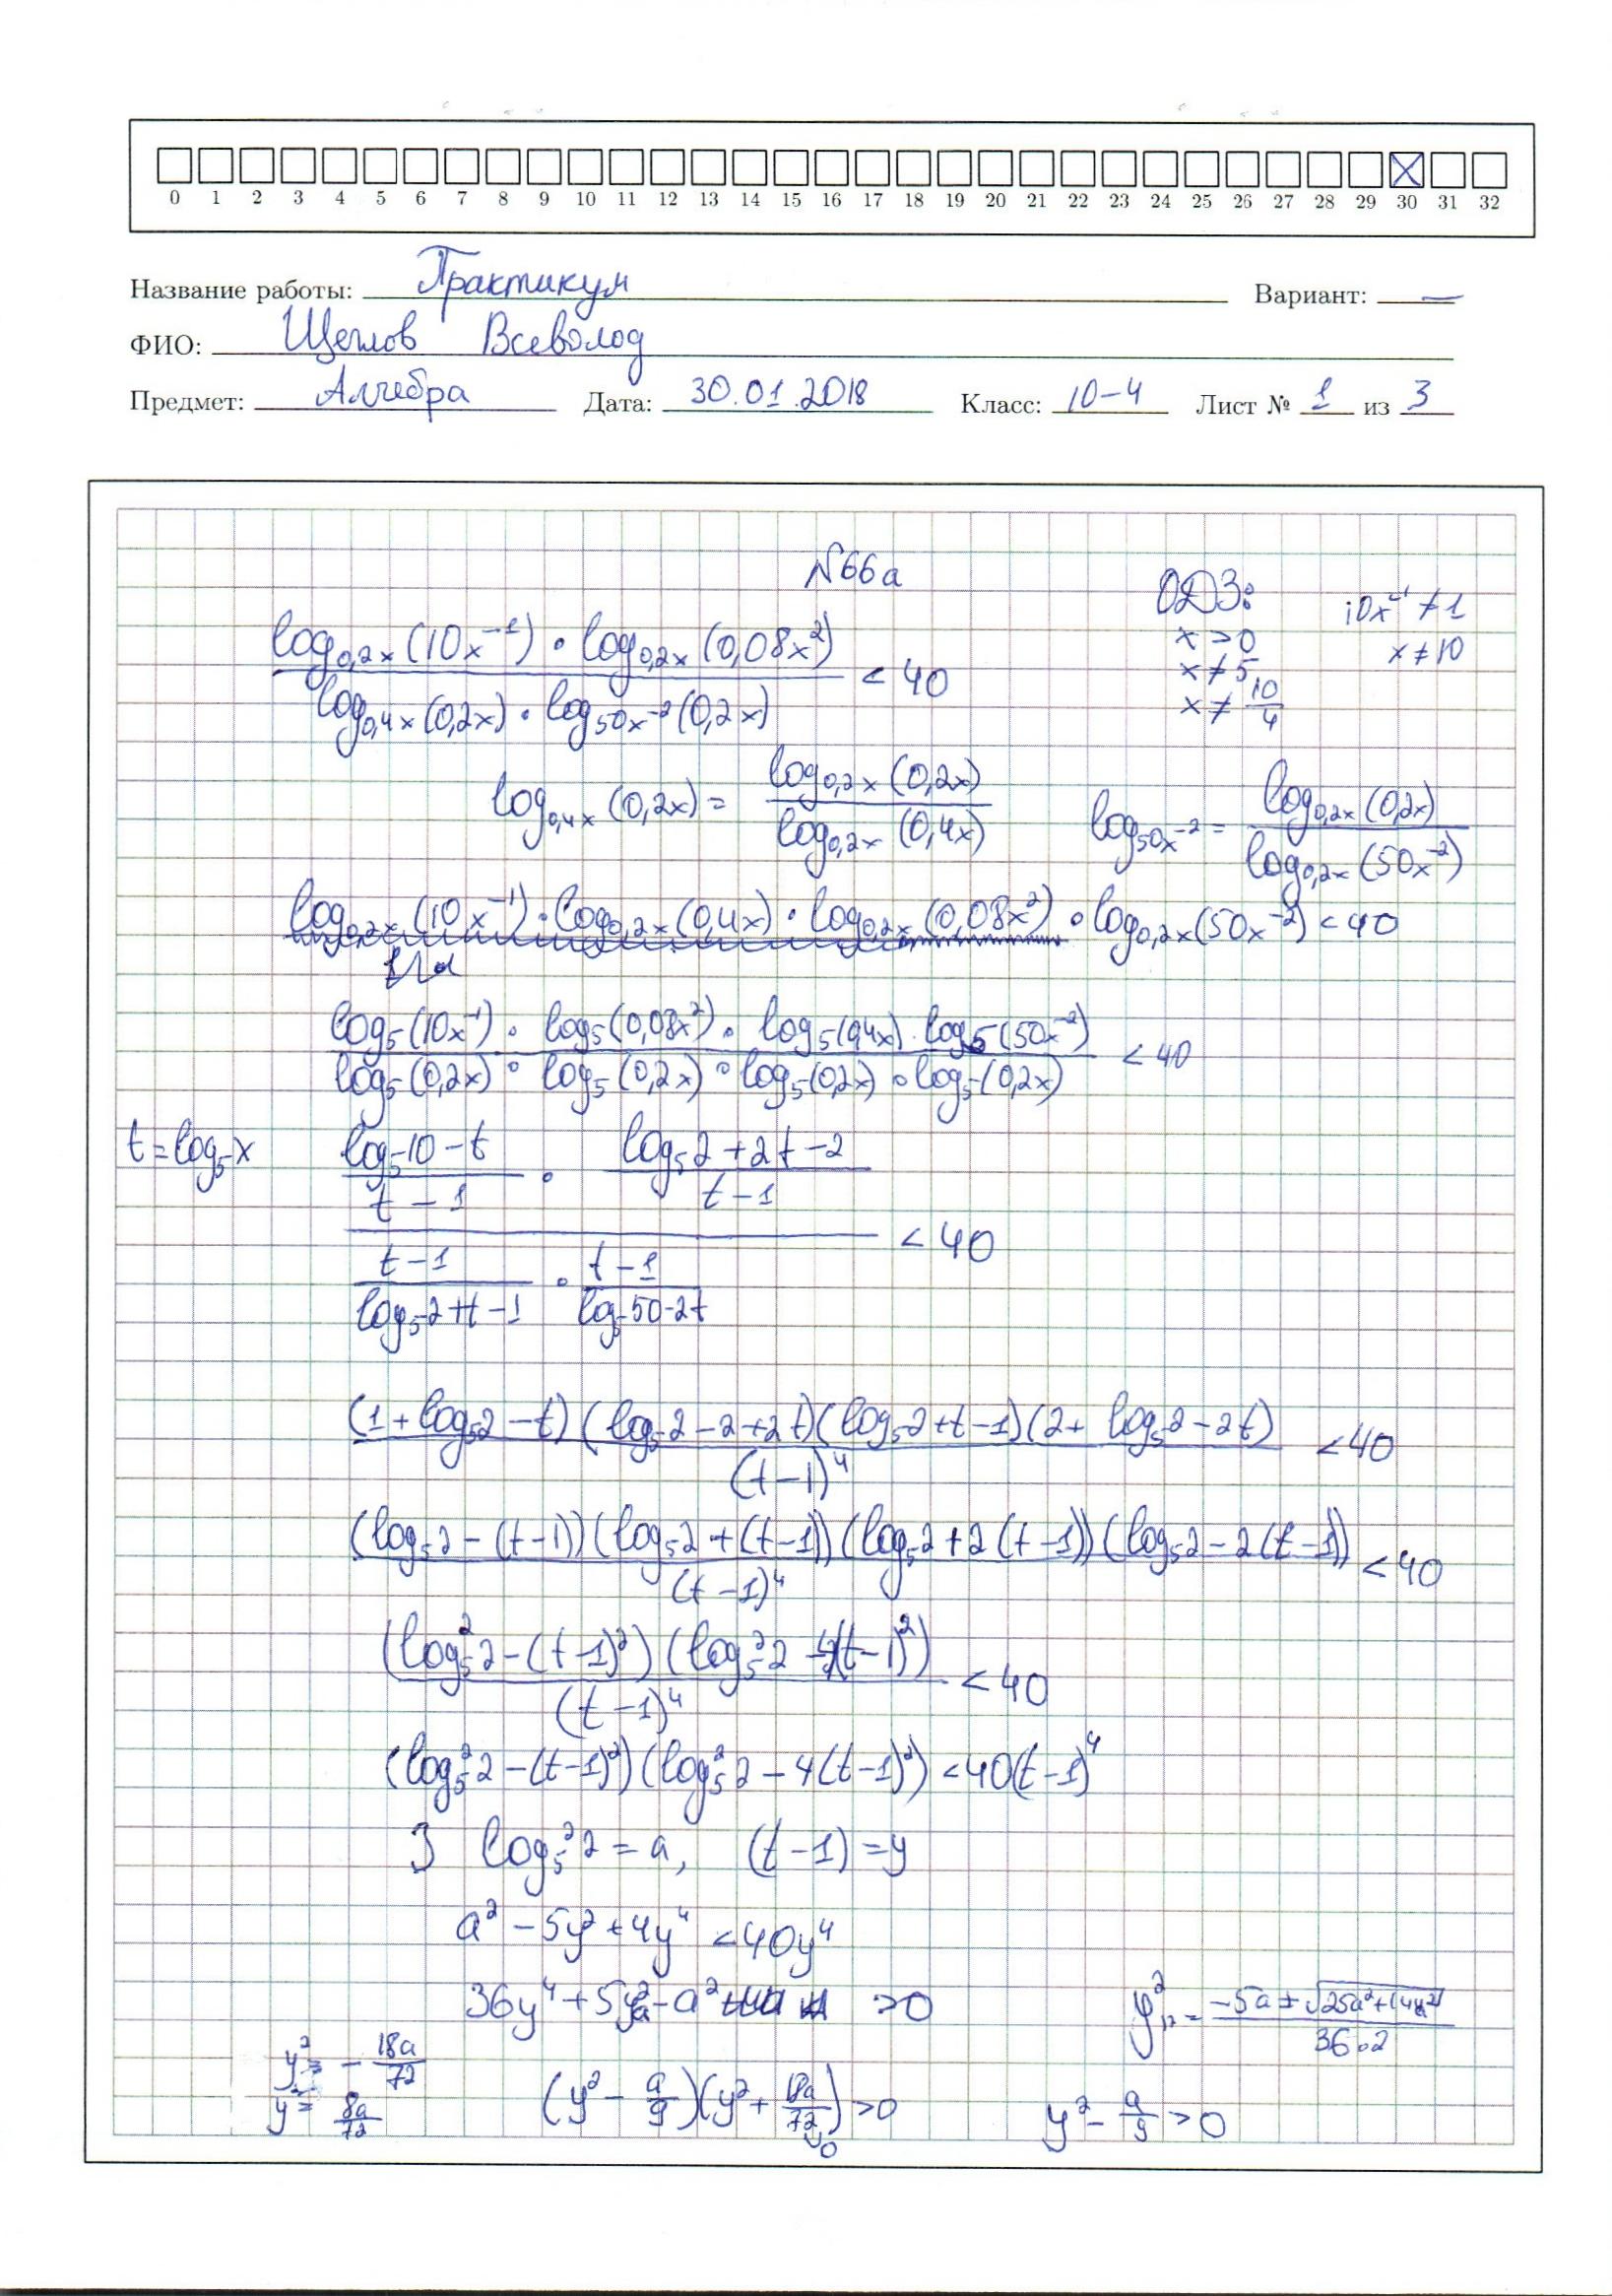 0 1 2 3 4 5 6 7 8 9 10 11 12 13 14 15 16 17 18 19 20 21 22 23 24 25 26 27 28 29 30 31 32
Название работы: Практикум Вариант: —
ФИО: Щеглов Всеволод
Предмет: Алгебра Дата: 30.01.2018 Класс: 10-4 Лист № 1 из 3
№66а
ОДЗ: 10x⁻¹ ≠ 1
x > 0 x ≠ 10
x ≠ 5
x ≠ 10/4
(log_{0,2x}(10x⁻¹) · log_{0,2x}(0,08x²)) / (log_{0,4x}(0,2x) · log_{50x⁻²}(0,2x)) < 40
log_{0,4x}(0,2x) = log_{0,2x}(0,2x) / log_{0,2x}(0,4x) log_{50x⁻²} = log_{0,2x}(0,2x) / log_{0,2x}(50x⁻²)
log_{0,2x}(10x⁻¹) · log_{0,2x}(0,4x) · log_{0,2x}(0,08x²) · log_{0,2x}(50x⁻²) < 40
(log₅(10x⁻¹) · log₅(0,08x²) · log₅(0,4x) · log₅(50x⁻²)) / (log₅(0,2x) · log₅(0,2x) · log₅(0,2x) · log₅(0,2x)) < 40
t = log₅x ((log₅10 - t)/(t - 1) · (log₅2 + 2t - 2)/(t - 1)) / ((t - 1)/(log₅2 + t - 1) · (t - 1)/(log₅50 - 2t)) < 40
((1 + log₅2 - t)(log₅2 - 2 + 2t)(log₅2 + t - 1)(2 + log₅2 - 2t)) / (t - 1)⁴ < 40
((log₅2 - (t-1))(log₅2 + (t-1))(log₅2 + 2(t-1))(log₅2 - 2(t-1))) / (t-1)⁴ < 40
((log₅²2 - (t-1)²)(log₅²2 - 4(t-1)²)) / (t-1)⁴ < 40
(log₅²2 - (t-1)²)(log₅²2 - 4(t-1)²) < 40(t-1)⁴
З log₅²2 = a, (t-1) = y
a² - 5y² + 4y⁴ < 40y⁴
36y⁴ + 5y²a - a² > 0 y²₁,₂ = (-5a ± √(25a² + 144a²)) / (36·2)
y² = - 18a/72
y² = 8a/72 (y² - a/9)(y² + 18a/72) > 0 y² - a/9 > 0